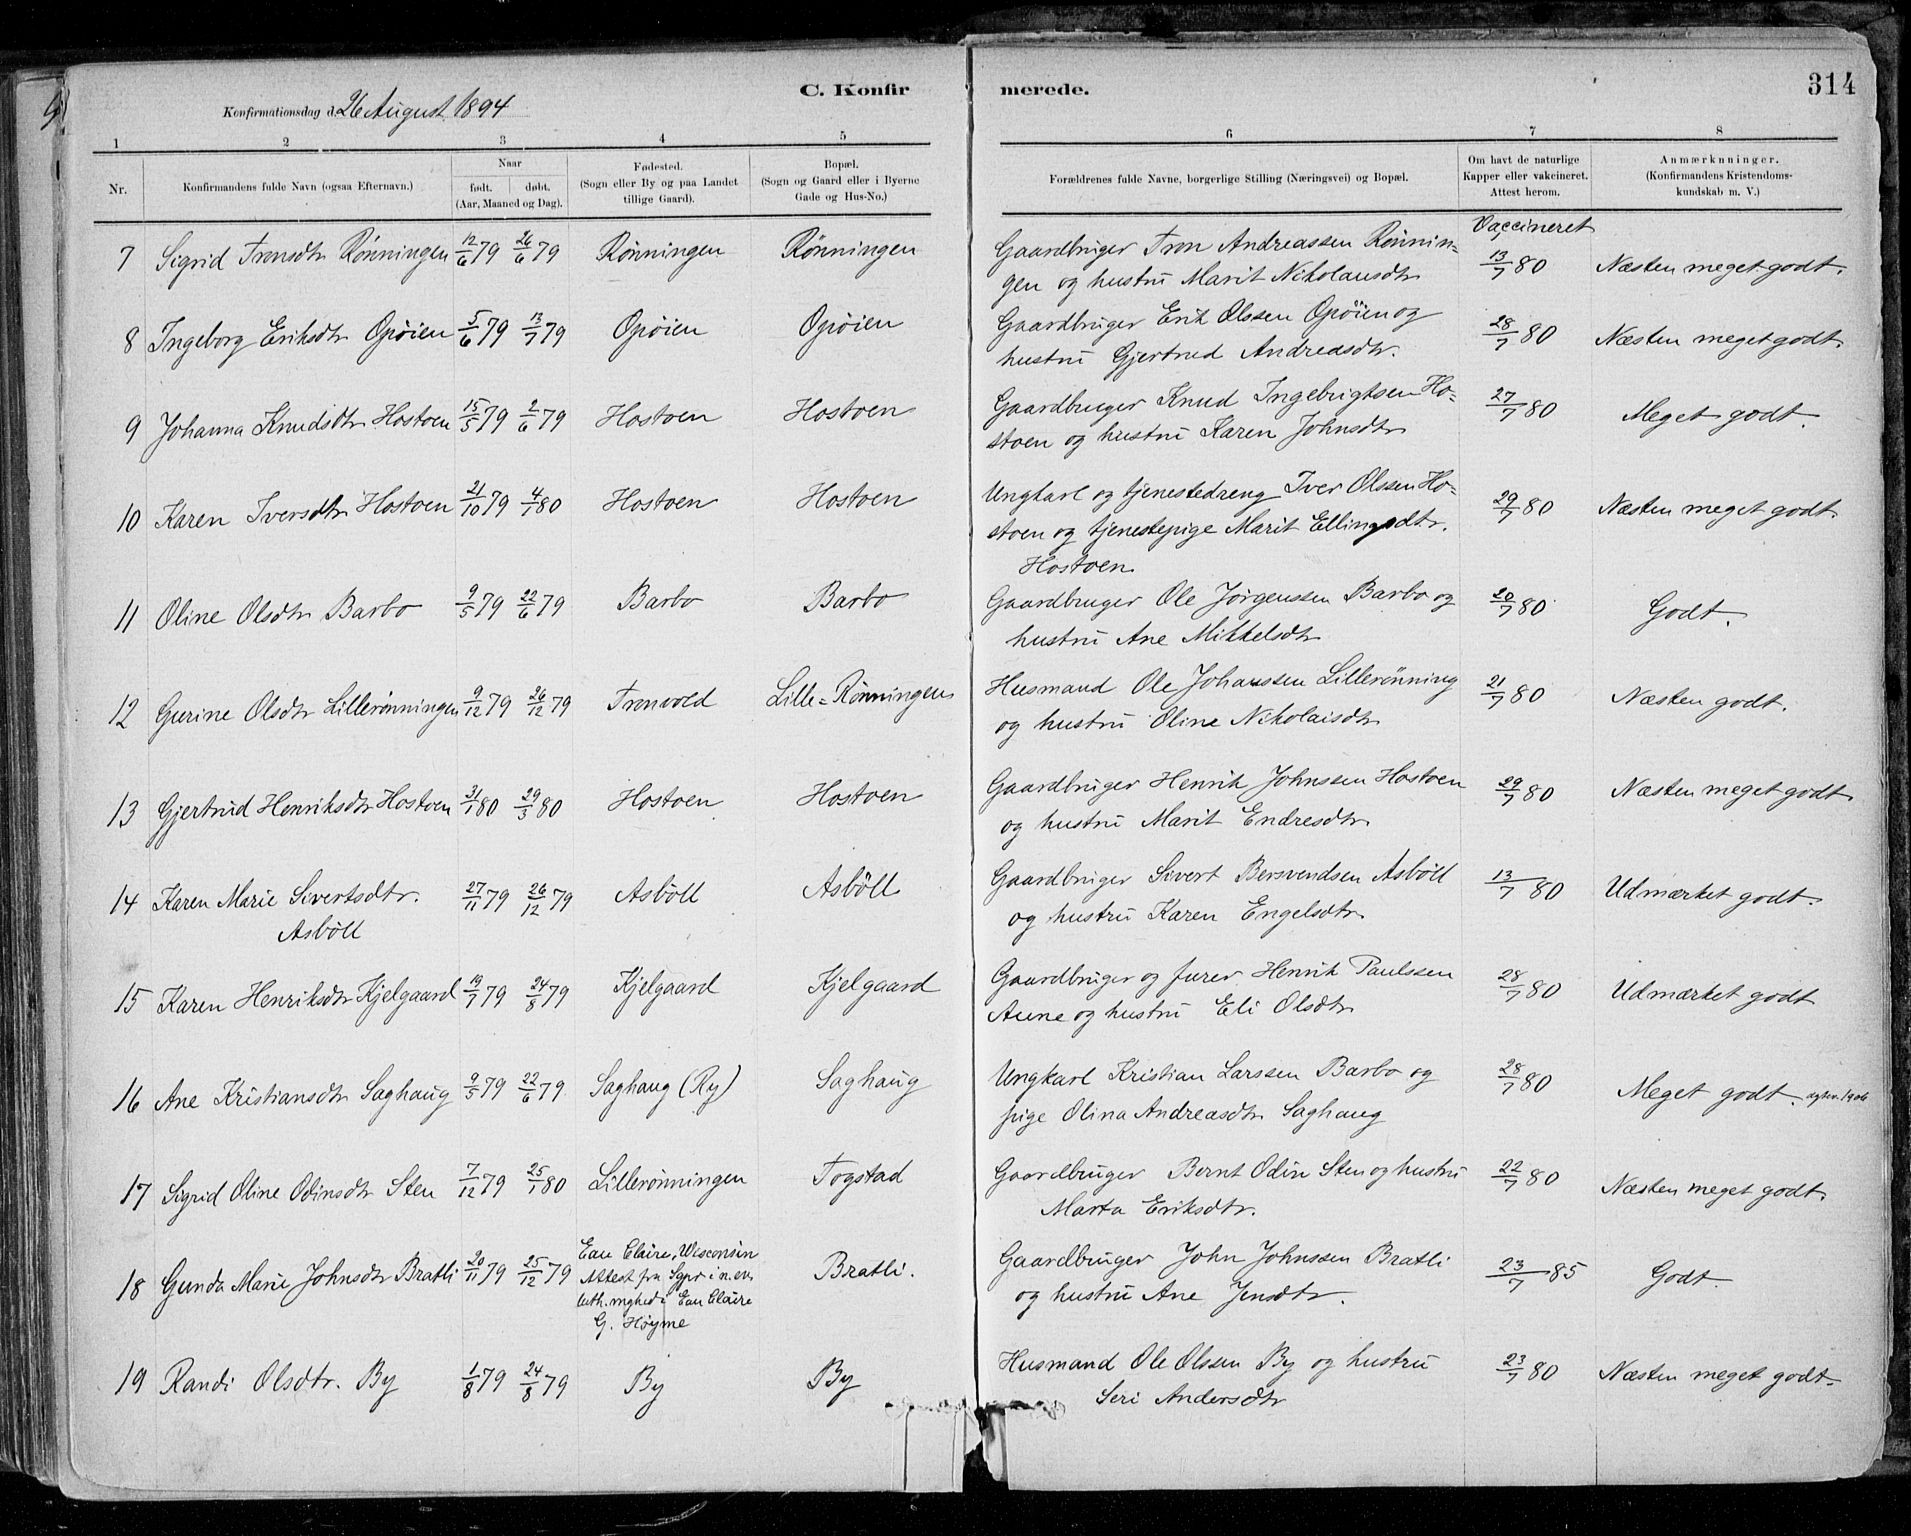 C. Konfirmerede.
314
Konfirmationsdag d. 26 August 1894
1 2 3 4 5 6 7 8
Nr.
Konfirmandens fulde Navn (ogsaa Efternavn.)
Naar
født. døbt.
(Aar, Maaned og Dag).
Fødested.
(Sogn eller By og paa Landet
tillige Gaard).
Bopæl.
(Sogn og Gaard eller i Byerne
Gade og Hus-No.)
Forældrenes fulde Navne, borgerlige Stilling (Næringsvei) og Bopæl.
Om havt de naturlige
Kapper eller vakcineret.
Attest herom.
Anmærknninger.
(Konfirmandens Kristendoms-
kundskab m. V.)
Vaccineret
7 Sigrid Tronsdtr Rønningen 12/6 79 26/6 79 Rønningen Rønningen Gaardbruger Tron Andreassen Rønnin- 13/7 80 Næsten meget godt.
gen og hustru Marit Nikolausdtr
8 Ingeborg Eriksdtr Opøien 5/6 79 13/7 79 Opøien Opøien Gaardbruger Erik Olssen Opøien og 28/7 80 Næsten meget godt.
hustru Gjertrud Andreasdtr.
9 Johanna Knudsdtr Hostoen 15/5 79 2/6 79 Hostoen Hostoen Gaardbruger Knud Ingebrigtsen Ho- 27/7 80 Meget godt.
stoen og hustru Karen Johnsdtr
10 Karen Iversdtr Hostoen 21/10 79 4/1 80 Hostoen Hostoen Ungkarl og tjenestedreng Iver Olssen Ho- 29/7 80 Næsten meget godt.
stoen og tjenestepige Marit Ellingsdtr.
Hostoen
11 Oline Olsdtr Barbo 9/5 79 22/6 79 Barbo Barbo Gaardbruger Ole Jørgenssen Barbo og 20/7 80 Godt.
hustru Ane Mikkelsdtr
12 Gurine Olsdtr Lillerønningen 9/12 79 26/12 79 Tronvold Lille-Rønningen Husmand Ole Johanssen Lillerønning 21/7 80 Næsten godt.
og hustru Oline Nikolaisdtr
13 Gjertrud Henriksdtr Hostoen 31/1 80 29/3 80 Hostoen Hostoen Gaardbruger Henrik Johnssen Hostoen 29/7 80 Næsten meget godt
og hustru Marit Endresdtr.
14 Karen Marie Sivertsdtr. 27/11 79 26/12 79 Asbøll Asbøll Gaardbruger Sivert Bersvendsen Asbøll 13/7 80 Udmærket godt.
Asbøll og hustru Karen Engelsdtr.
15 Karen Henriksdtr Kjelgaard 19/7 79 24/8 79 Kjelgaard Kjelgaard Gaardbruger og furer Henrik Paulssen 28/7 80 Udmærket godt
Aune og hustru Eli Olsdtr
16 Ane Kristiansdtr Saghaug 9/5 79 22/6 79 Saghaug (Ry) Saghaug Ungkarl Kristian Larssen Barbo og 28/7 80 Meget godt.
pige Olina Andreasdtr Saghaug
17 Sigrid Oline Odinsdtr Sten 7/12 79 25/1 80 Lillerønningen Togstad Gaardbruger Bernt Odin Sten og hustru 22/7 80 Næsten meget godt.
Marta Eriksdtr.
18 Gunda Marie Johnsdtr Bratli 20/11 79 25/12 79 Eau Claire, Wisconsin Bratli. Gaardbruger John Johnssen Bratli 23/7 85 Godt.
Attest fra Sgpr i n. ev.
luth. mghed i Eau Claire og hustru Ane Jensdtr.
G. Høyme
19 Randi Olsdtr. By 1/8 79 24/8 79 By By Husmand Ole Olssen By og hustru 23/7 80 Næsten meget godt.
Seri Andersdtr